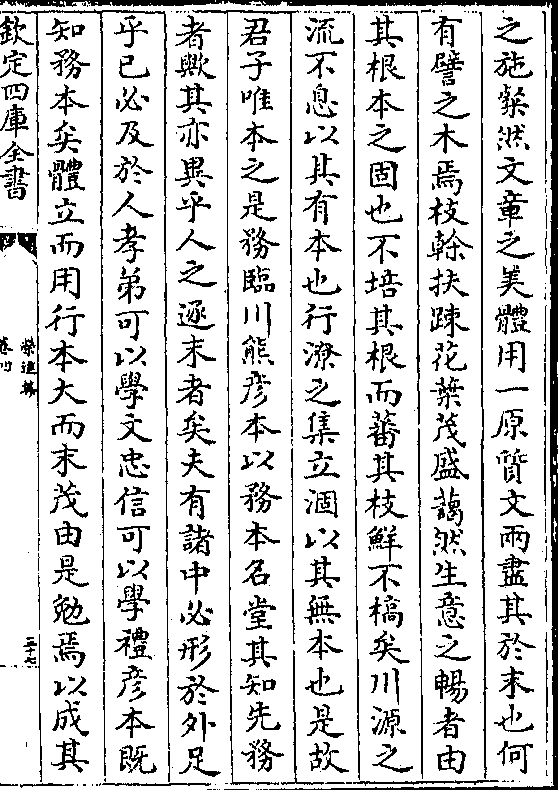 之施粲然文章之美體用一原質文兩盡其於末也何
有譬之木焉枝榦扶踈花葉茂盛藹然生意之暢者由
其根本之固也不培其根而蕃其枝鮮不槁矣川源之
流不息以其有本也行潦之集立涸以其無本也是故
君子唯本之是務臨川熊彦本以務本名堂其知先務
者歟其亦異乎人之逐末者矣夫有諸中必形於外足
乎已必及於人孝弟可以學文忠信可以學禮彦本既
知務本矣體立而用行本大而末茂由是勉焉以成其
欽定四庫全書
榮進集
卷四
三十七